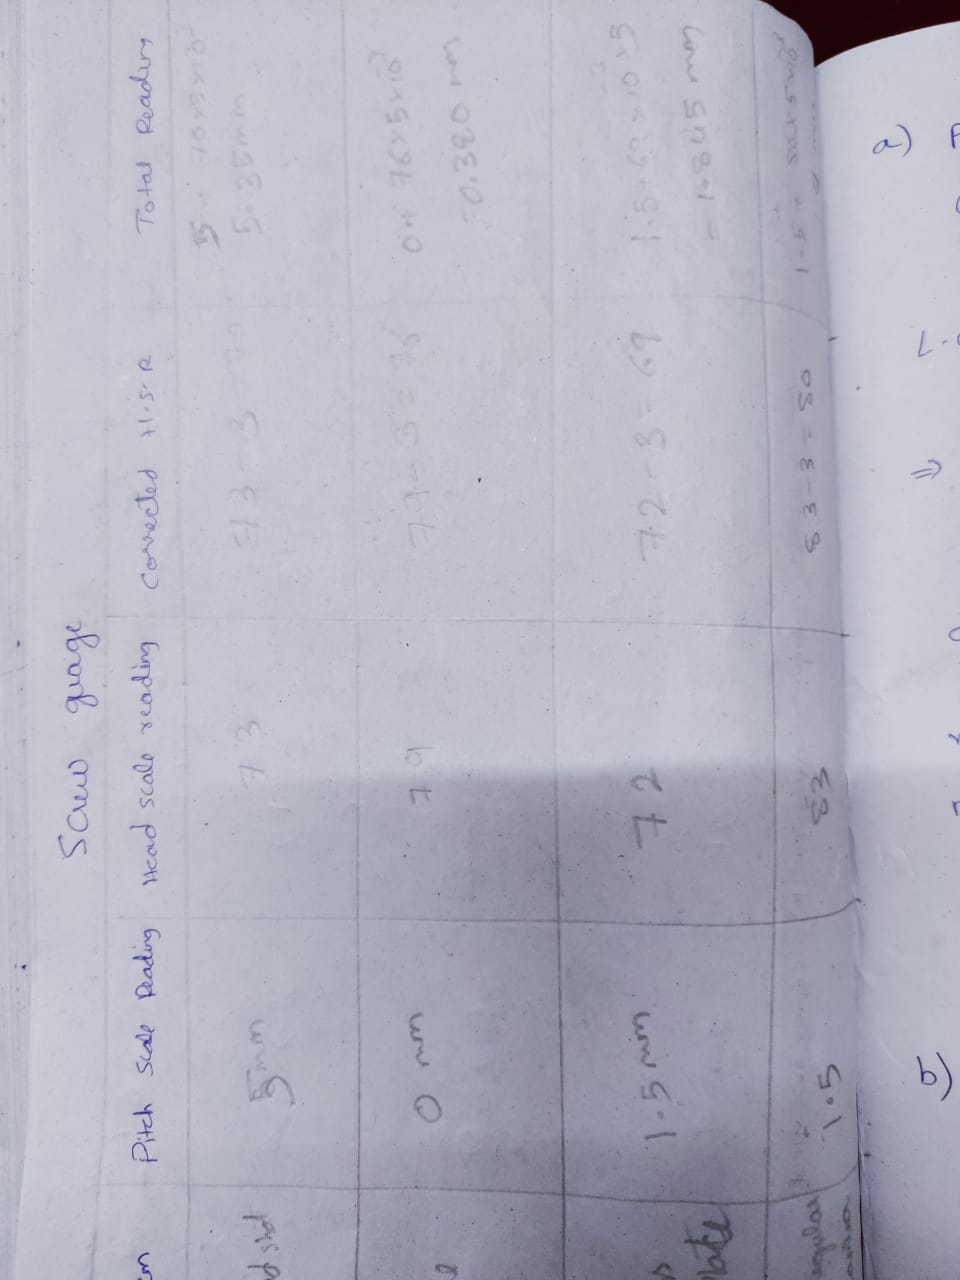 Screw guage
m Pitch Scale Reading Head scale reading Corrected H.S.R Total Reading
d shot 5mm 73 73-3=70 5+ 70×5×10⁻³
5.35mm
79 79-3=76 0+ 76×5×10⁻³
0 mm =0.380 mm
1.5 mm 72 72-3=69 1.5+69×10⁻³×5
=1.845 mm
1.5 83 83-3=80 1.5+
a)
b)